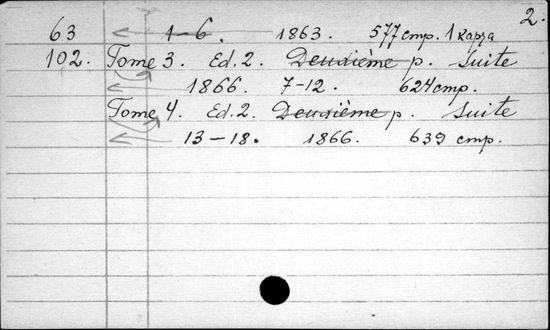 2.
63 1-6. 1863. 577 стр. 1 карта
102. Tome 3. Ed. 2. Deuxième p. Suite
1866. 7-12. 624 стр.
Tome 4. Ed. 2. Deuxième p. Suite
13-18. 1866. 639 стр.